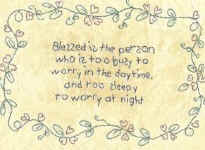 Blessed is the person
who is too busy to
worry in the daytime,
and too sleepy
to worry at night